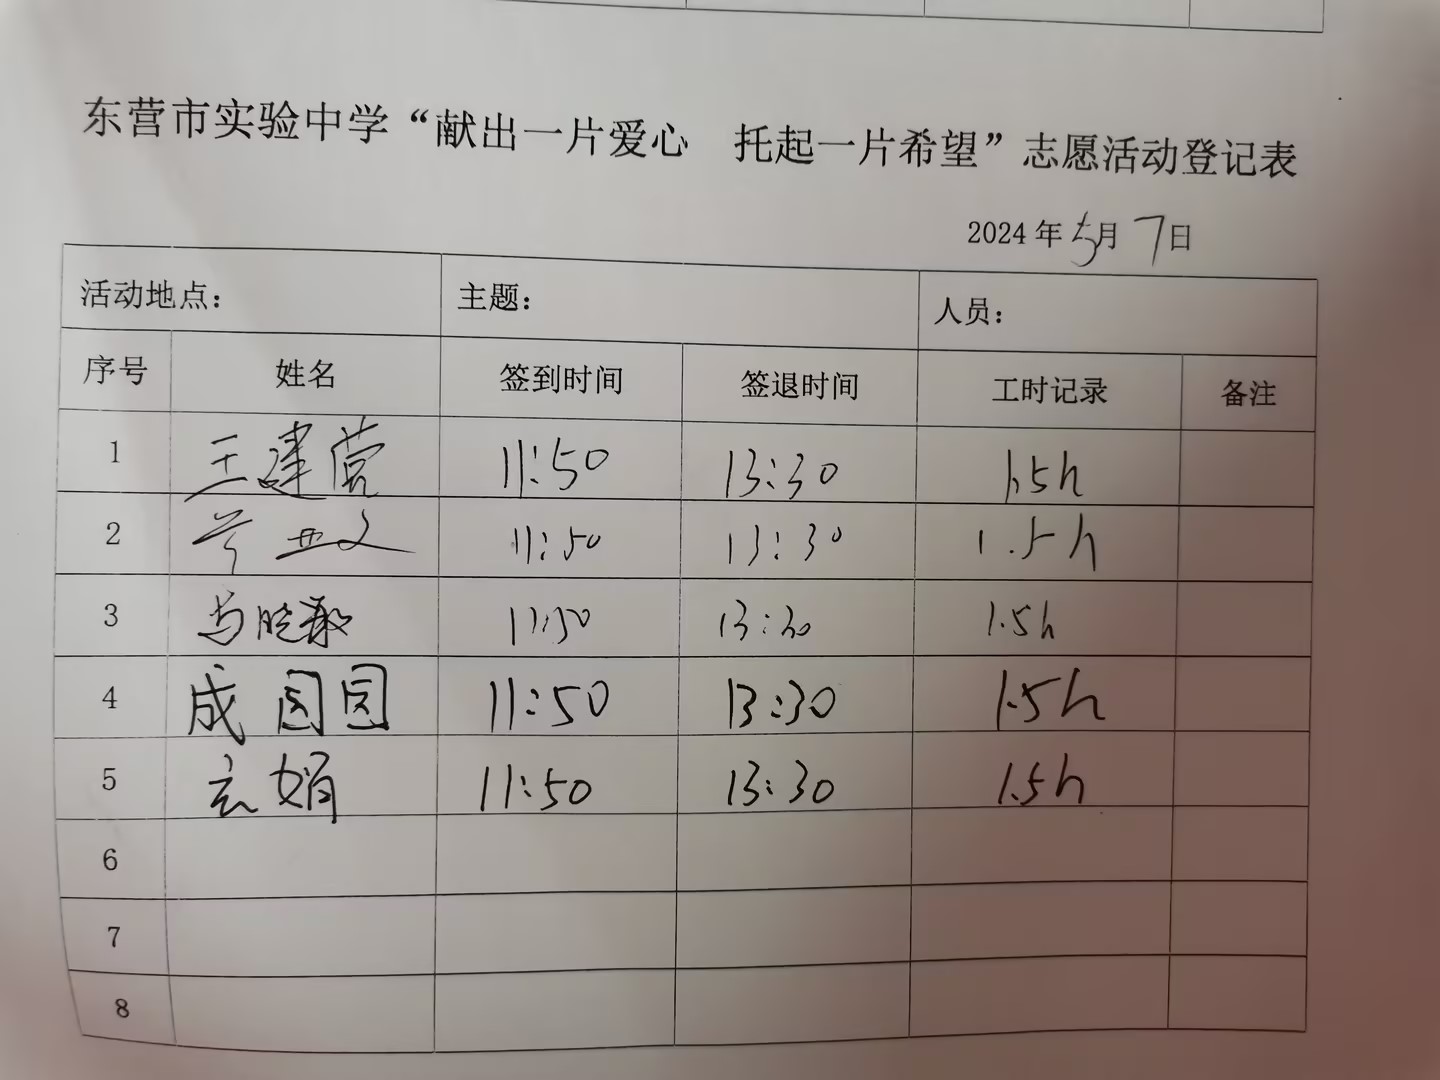 东营市实验中学“献出一片爱心 托起一片希望”志愿活动登记表
2024年5月7日
活动地点： 主题： 人员：
序号 姓名 签到时间 签退时间 工时记录 备注
1 王建营 11:50 13:30 1.5h
2 11:50 13:30 1.5h
3 11:50 13:30 1.5h
4 成圆圆 11:50 13:30 1.5h
5 玄娟 11:50 13:30 1.5h
6
7
8